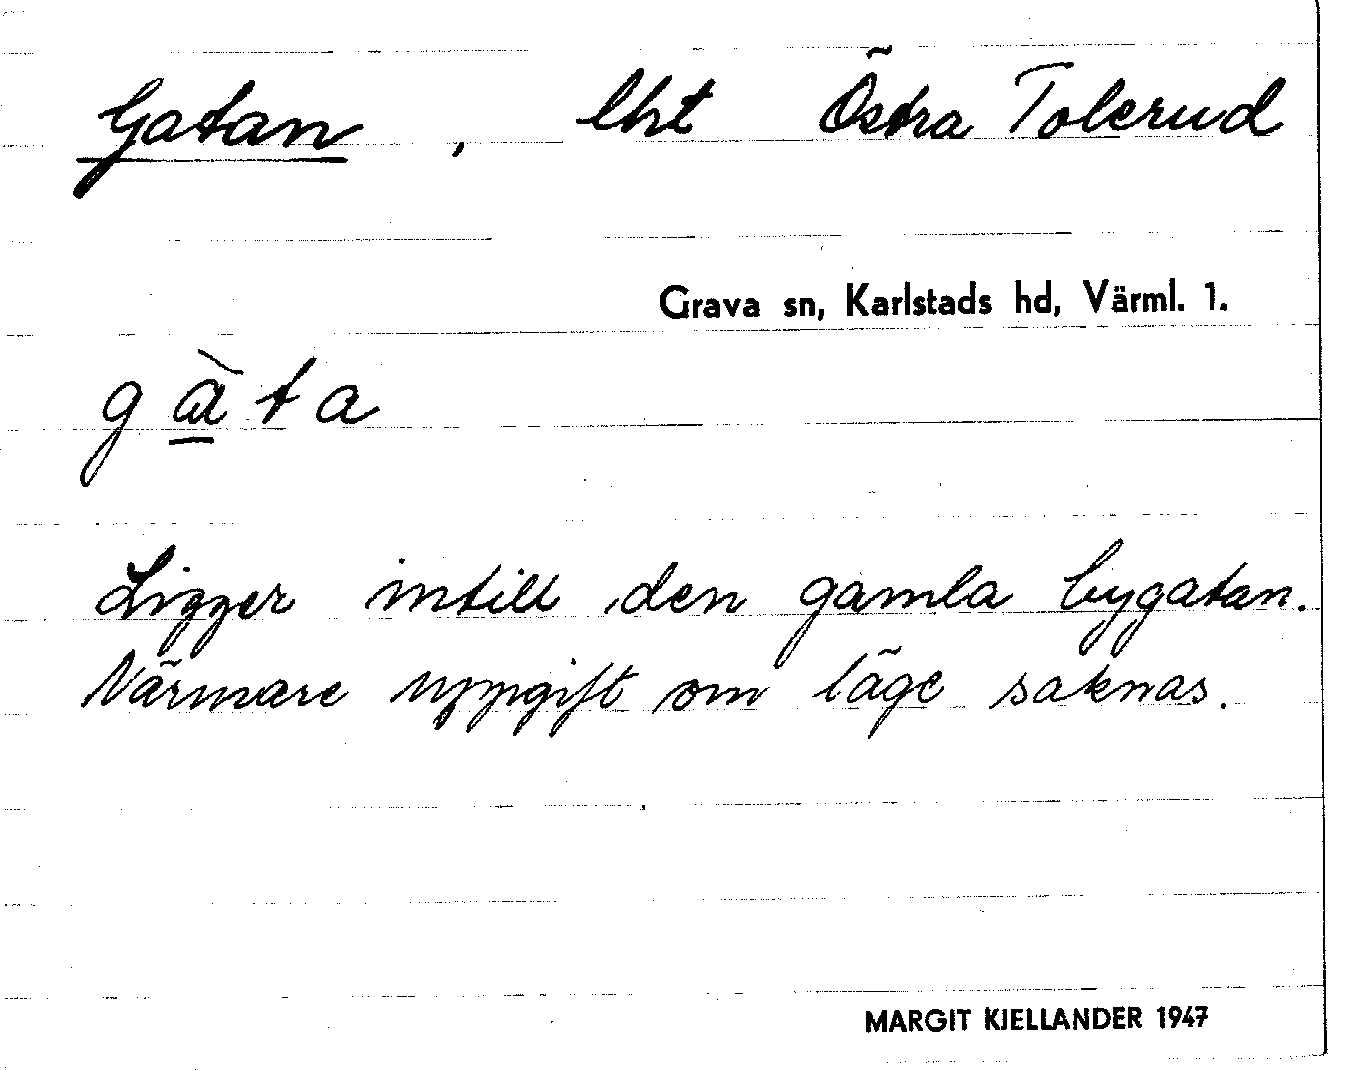 Gatan, lht Östra Tolerud
Grava sn, Karlstads hd, Värml. 1.
gà̱ta
Ligger intill den gamla bygatan.
Närmare uppgift om läge saknas.
MARGIT KJELLANDER 1947